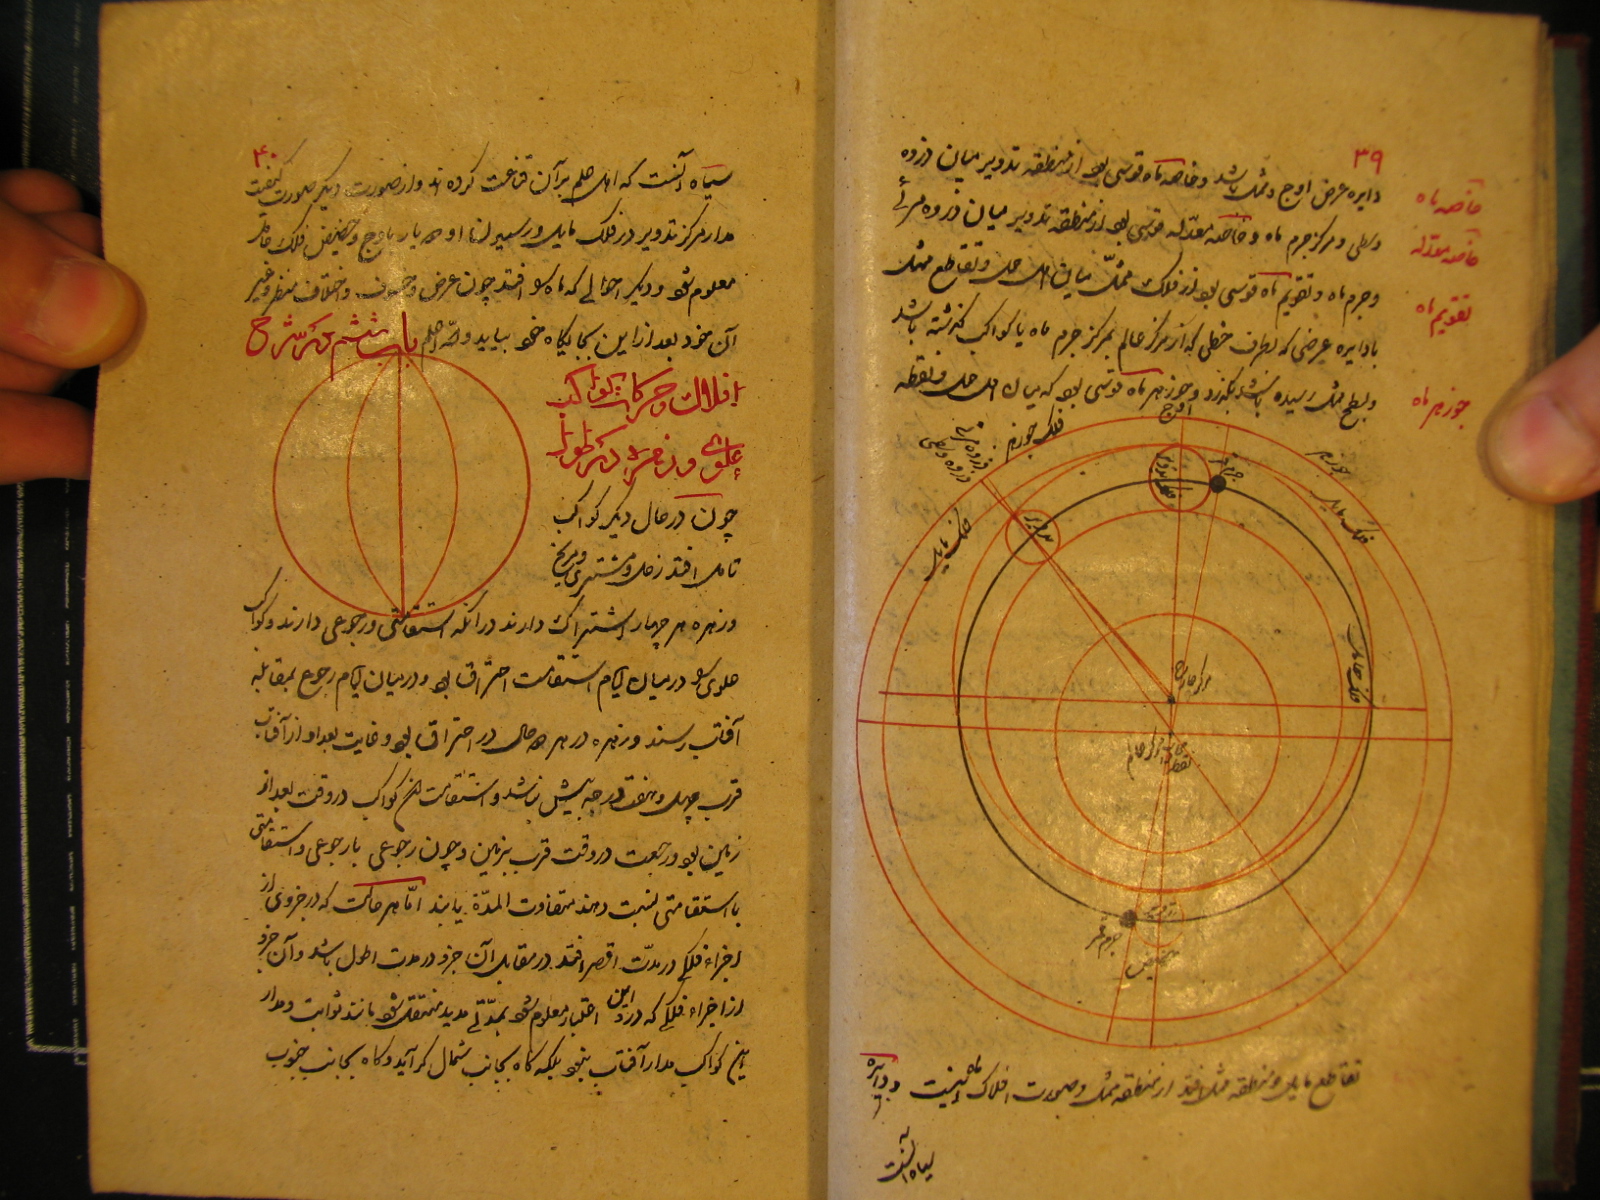 ۳۹
دایره عرض اوج و ممثل باشد و خاصه ماه قوسی بود از منطقه تدویر میان ذروه
خاصه ماه
وسطی و مرکز جرم ماه و خاصه معدله قوسی بود از منطقه تدویر میان ذروه مرئی
خاصه معدله
و جرم ماه و تقویم ماه قوسی بود از فلک ممثل میان اول حمل و تقاطع ممثل
تقویم ماه
با دایره عرضی که بطرف خطی که از مرکز عالم بمرکز جرم ماه یا کواکب گذشته باشد
و بسطح ممثل رسیده باشد بگذرد و جوزهر ماه قوسی بود که میان اول حمل و نقطه
جوزهر ماه
اوج
فلک جوزهر
ذروه مرئی
ذروه وسطی
جوزهر
فلک مایل
فلک تدویر
جرم قمر
تدویر
فلک مایل
فلک حامل
مرکز حامل
مرکز عالم
نقطه
تدویر
جرم قمر
حضیض
تقاطع مایل و منطقه ممثل افتد از منطقه ممثل و صورت افلاک ماه اینست و دایره
سیاه آنست
۴۰
سیاه آنست که اهل علم بر آن قناعت کرده اند و از صورت دیگر صورت کیفیت
مدار مرکز تدویر در فلک مایل و رسیدن او دو بار باوج و حضیض فلک حامل
معلوم شود و دیگر احوالی که ماه را افتد چون عرض و خسوف و اختلاف منظر و غیر
آن خود بعد از این بجایگاه خود بیاید والله اعلم باب ششم در شرح
افلاک و حرکات کواکب
علوی و زهره در طول
چون در حال دیگر کواکب
تامل افتد زحل و مشتری و مریخ
و زهره هر چهار اشتراک دارند در آنکه استقامتی و رجوعی دارند و کواکب
علوی را در میان ایام استقامت احتراق بود و در میان ایام رجوع بمقابله
آفتاب رسند و زهره در هر دو حال در احتراق بود و غایت بعد او از آفتاب
قرب چهل و هفت درجه بیش نباشد و استقامت این کواکب در وقت بعد از
زمین بود و رجعت در وقت قرب بزمین و چون رجوعی با رجوعی و استقامتی
با استقامتی نسبت دهند متفاوت المدة یابند اما هر حالت که در جزوی از
اجزاء فلکی در مدت اقصر افتد در مقابل آن جزو در مدت اطول باشد و آن جزو
از اجزاء فلکی که در او این اختلاف معلوم شود بمدتی مدید منتقل شود مانند ثوابت و مدار
این کواکب مدار آفتاب نبود بلکه گاه بجانب شمال گراید و گاه بجانب جنوب